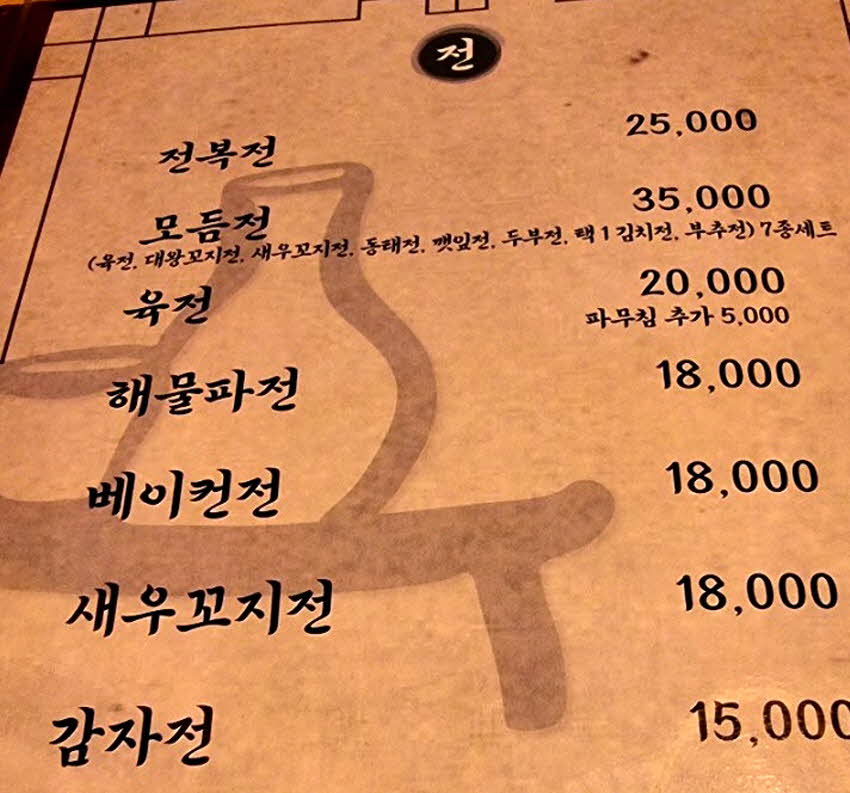 전
전복전 25,000
모듬전 35,000
(육전, 대왕꼬지전, 새우꼬지전, 동태전, 깻잎전, 두부전, 택1 김치전, 부추전) 7종세트
육전 20,000
파무침 추가 5,000
해물파전 18,000
베이컨전 18,000
새우꼬지전 18,000
감자전 15,000